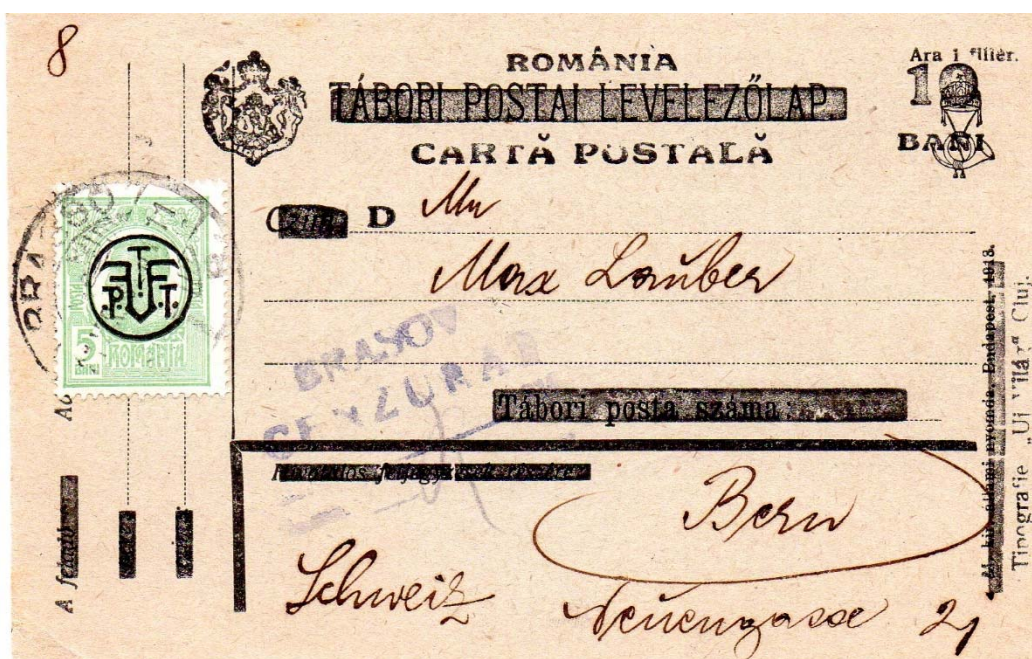 8
ROMÂNIA
TÁBORI POSTAI LEVELEZŐLAP
CARTĂ POSTALĂ
Ara 1 fillér.
BANI
D Mr
Max Lauber
BRAȘOV
CENZURAT
Tábori posta száma
Bern
Schweiz
Neuengasse 21
5
BANI
ROMANIA
P. T.
BRAȘO
M. kir. állami nyomda. Budapest, 1918.
Tipografie „Uj Világ" Cluj.